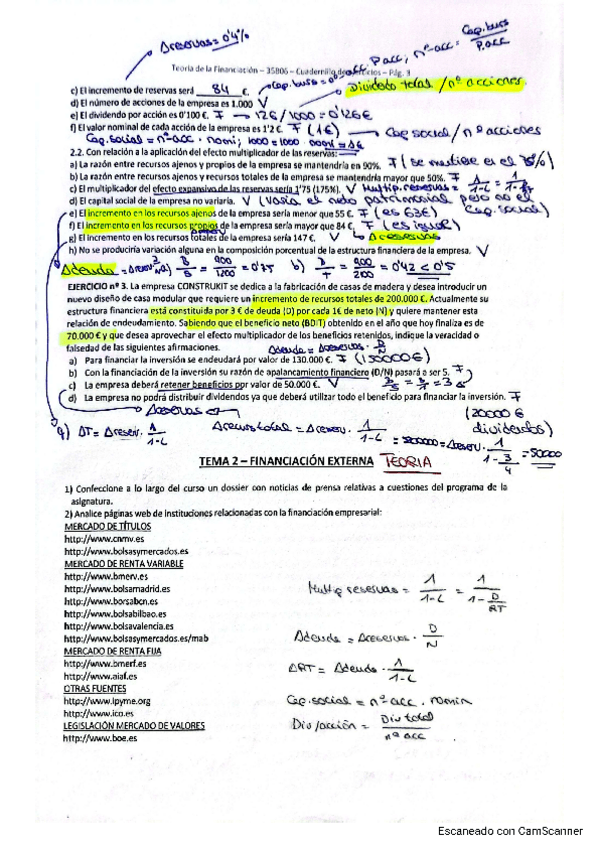 Δreservas = 0'4%
Cap. burs
P.acc
P acc, nº acc =
Teoría de la Financiación – 35806 – Cuadernillo de ejercicios – Pág. 3
Cap. burs = nº acc
Dividedo total / nº acciones.
c) El incremento de reservas será 84 €.
d) El número de acciones de la empresa es 1.000 V
e) El dividendo por acción es 0'100 €. F → 126/1000 = 0'126€
f) El valor nominal de cada acción de la empresa es 1'2 €. F (1€) → Cap social / nº acciones
Cap. social = nº acc · nomi; 1000 = 1000 · nomi = 1€
2.2. Con relación a la aplicación del efecto multiplicador de las reservas:
a) La razón entre recursos ajenos y propios de la empresa se mantendría en 90%. F (se mantiene en el 75%)
b) La razón entre recursos ajenos y recursos totales de la empresa se mantendría mayor que 50%. F
c) El multiplicador del efecto expansivo de las reservas sería 1'75 (175%). V Multip. reservas = 1/1-L =
d) El capital social de la empresa no variaría. V (Varía el neto patrimonial pero no el Cap. social)
e) El incremento en los recursos ajenos de la empresa sería menor que 55 €. F (es 63€)
f) El incremento en los recursos propios de la empresa sería mayor que 84 €. F (es igual)
g) El incremento en los recursos totales de la empresa sería 147 €. V Δreservas
h) No se produciría variación alguna en la composición porcentual de la estructura financiera de la empresa. V
Δdeuda = Δreserv · a) D/S = 900/1200 = 0'75 b) D/T = 900/ = 0'42 < 0'5
EJERCICIO nº 3. La empresa CONSTRUKIT se dedica a la fabricación de casas de madera y desea introducir un
nuevo diseño de casa modular que requiere un incremento de recursos totales de 200.000 €. Actualmente su
estructura financiera está constituida por 3 € de deuda (D) por cada 1€ de neto (N) y quiere mantener esta
relación de endeudamiento. Sabiendo que el beneficio neto (BDIT) obtenido en el año que hoy finaliza es de
70.000 € y que desea aprovechar el efecto multiplicador de los beneficios retenidos, indique la veracidad o
falsedad de las siguientes afirmaciones. Δdeuda = Δreservas · D/N
a) Para financiar la inversión se endeudará por valor de 130.000 €. F (150000€)
b) Con la financiación de la inversión su razón de apalancamiento financiero (D/N) pasará a ser 5. F
c) La empresa deberá retener beneficios por valor de 50.000 €. V D/S = 3/1 = 3
d) La empresa no podrá distribuir dividendos ya que deberá utilizar todo el beneficio para financiar la inversión. F
Δreservas
(20000 € dividendos)
g) ΔT = Δreserv. 1/1-L Δrecurs total = Δreserv. 1/1-L = 200000 = Δreserv. 1/1-3/4 = 50000
TEMA 2 – FINANCIACIÓN EXTERNA TEORIA
1) Confeccione a lo largo del curso un dossier con noticias de prensa relativas a cuestiones del programa de la
asignatura.
2) Analice páginas web de instituciones relacionadas con la financiación empresarial:
MERCADO DE TÍTULOS
http://www.cnmv.es
http://www.bolsasymercados.es
MERCADO DE RENTA VARIABLE
http://www.bmerv.es
http://www.bolsamadrid.es
http://www.borsabcn.es
http://www.bolsabilbao.es
http://www.bolsavalencia.es
http://www.bolsasymercados.es/mab
MERCADO DE RENTA FIJA
http://www.bmerf.es
http://www.aiaf.es
OTRAS FUENTES
http://www.ipyme.org
http://www.ico.es
LEGISLACIÓN MERCADO DE VALORES
http://www.boe.es
Multip reservas = 1/1-L = 1/1-D/RT
Δdeuda = Δreservas · D/N
ΔRT = Δdeuda · 1/1-L
Cap. social = nº acc · nomin
Div/acción = Div total/nº acc
Escaneado con CamScanner